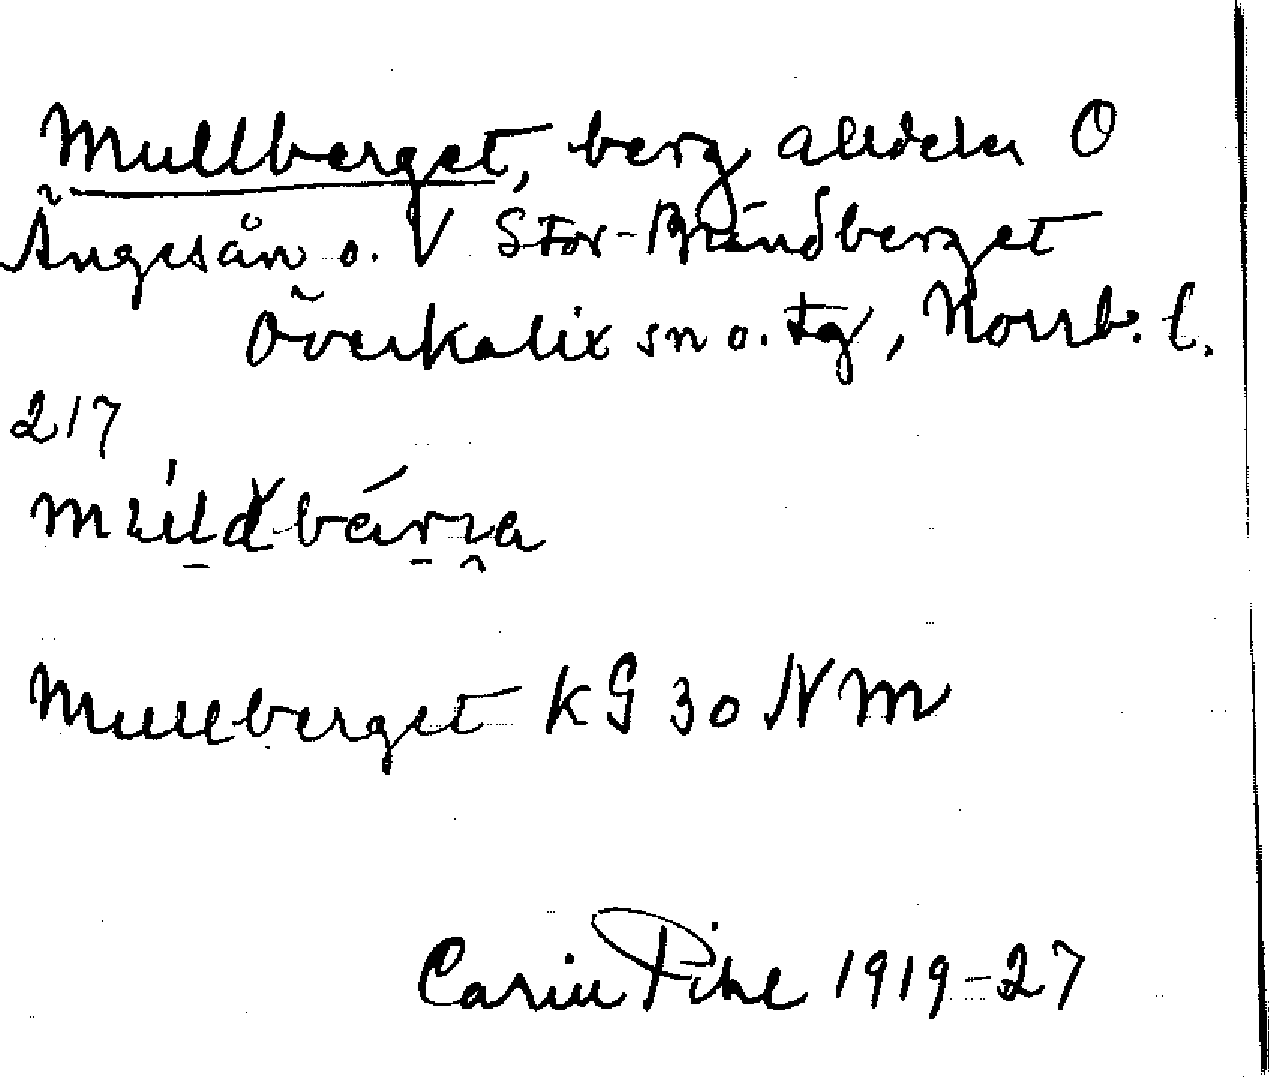 Mullberget, berg alldeles O
Ängesån o. V Stor-Brändberget
Överkalix sn o. tg, Norrb. l.
217
Mullberget KG 30 NM
Carin Pihl 1919-27